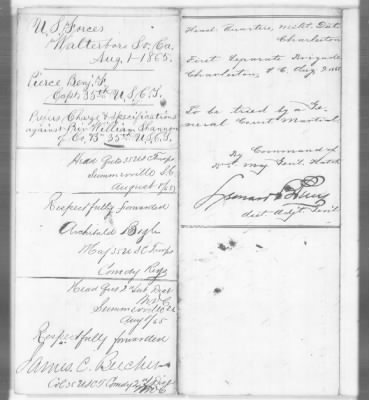 U.S. Forces
Walterboro So. Ca.
Aug. 1- 1865.
Pierce Benj. F.
Capt. 35th U.S.C.T.
Charge & Specifications
against Priv. William
of Co. "B" 35th U.S.C.T.
Head Qrts 35 U.S.C. Troops
Summerville S.C.
August
Respectfully forwarded
Archibald Bogle
Maj 35 U.S.C. Troops
Comdg Regt
Head Qrs 2 Sub Dist
Summerville
Aug
Respectfully forwarded
James C. Beecher
Col 35 U.S.C.T. Comdg 2
Head Quarters, Milt. Dist.
Charleston
First Separate Brigade
Charleston, S.C. Aug
To be tried by a Ge-
neral Court Martial.
By Command of
Maj Genl. Hatch
Leonard B. Perry
Asst Adjt. Genl.